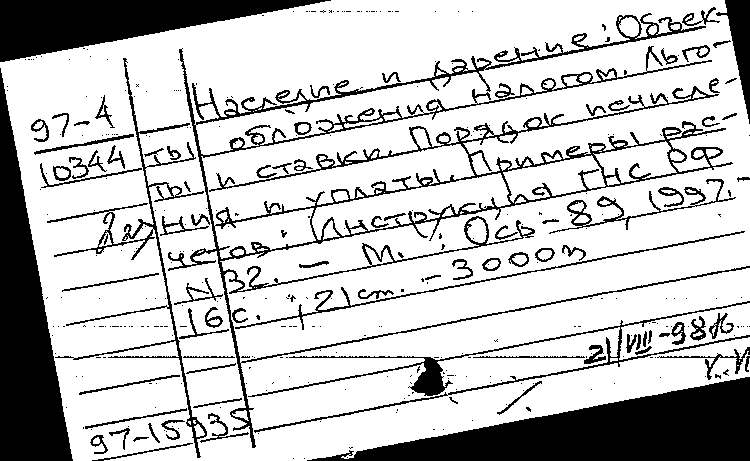 97-4
10344
Наследие и дарение: Объек-
ты обложения налогом. Льго-
ты и ставки. Порядок исчисле-
ния и уплаты. Примеры рас-
четов: Инструкция ГНС РФ
N32. – М.: Ось-89, 1997.-
16 с. , 21 см. - 3000
21/VIII-98
97-15935